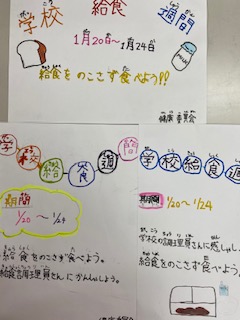 学校 給食 週間
がっ こう きゅう しょく しゅう かん
1月20日～1月24日
給食をのこさず食べよう!!
健康委員会
学校給食週間
期間
1/20 ～ 1/24
給食をのこさず食べよう。
給食調理員さんにかんしゃしよう。
学校給食週
期間
1/20 ～ 1/24
学校の調理員さんに感しゃし
給食をのこさず食べよう